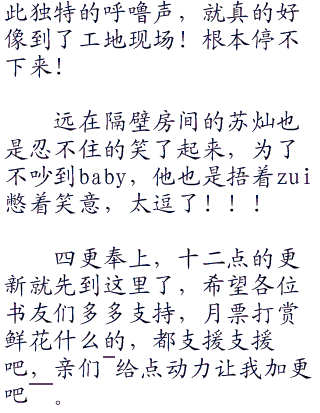 此独特的呼噜声，就真的好
像到了工地现场！根本停不
下来！
远在隔壁房间的苏灿也
是忍不住的笑了起来，为了
不吵到baby，他也是捂着zui
憋着笑意，太逗了！！！
四更奉上，十二点的更
新就先到这里了，希望各位
书友们多多支持，月票打赏
鲜花什么的，都支援支援
吧，亲们~给点动力让我加更
吧~~。